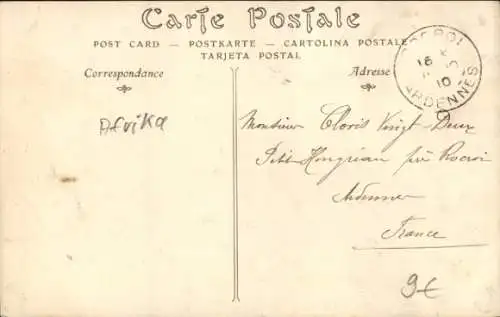 Carte Postale
POST CARD — POSTKARTE — CARTOLINA POSTALE
TARJETA POSTAL
Correspondance
Adresse
ROCROI
16
10
ARDENNES
Afrika
Monsieur Cloris Vingt-Deux
Petit Hongrian près Rocroi
Ardennes
France
9€